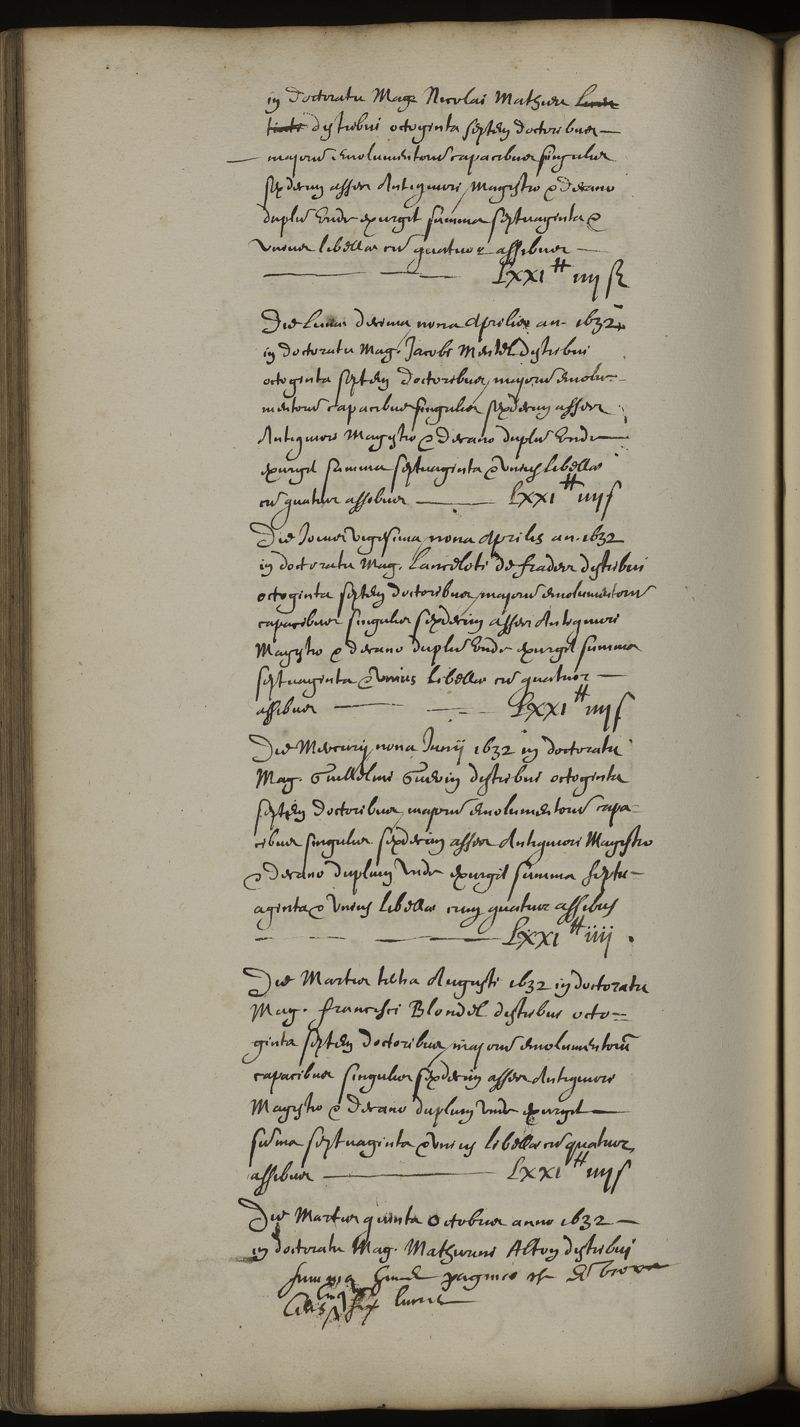 in doctoratu Mag. Nicolai Mathieu
distribui octoginta septem doctoribus —
majorũ emolumentorũ capacibus singulis
sexdecim asses Antiquiori Magistro & decano
duplũ Unde exurgit summa septuaginta &
unius libellae cũ quatuor assibus —
LXXI ₶ iiij s
Die Lunae decima nona Aprilis an. 1632
in doctoratu Mag. Jacobi Mentel distribui
octoginta septem doctoribus, majorũ emolu-
mentorũ capacibus singulis sexdecim asses
Antiquiori Magistro & Decano duplũ Unde
exurgit summa septuaginta & unius libellae
cũ quatuor assibus — LXXI ₶ iiij s
Die Jovis vigesima nona Aprilis an. 1632
in doctoratu Mag. Lanceloti de frades distribui
octoginta septem doctoribus, majorũ emolumentorũ
capacibus singulis sexdecim asses Antiquiori
Magistro & decano duplũ Unde exurgit summa
septuaginta & unius libellae cũ quatuor —
assibus — LXXI ₶ iiij s
Die Mercurij nona Junij 1632 in doctoratu
Mag. Guillelmi Guerin distribui octoginta
septem doctoribus, majorũ emolumentorũ capa-
cibus singulis sexdecim asses Antiquiori Magistro
& decano duplum unde exurgit summa septu-
aginta & unius libellae cum quatuor assibus
— LXXI ₶ iiij .
Die Martis tertia Augusti 1632 in doctoratu
Mag. francisci Blondel distribui octo-
ginta septem doctoribus, majorũ emolumentorũ
capacibus singulis sexdecim asses Antiquiori
Magistro & Decano duplum unde exurgit —
sũma septuaginta & unius libellae cũ quatuor
assibus — LXXI ₶ iiij s
Die Martis quinta Octobris anno 1632 —
in doctoratu Mag. Mathurini Alton distribui
summa paginae